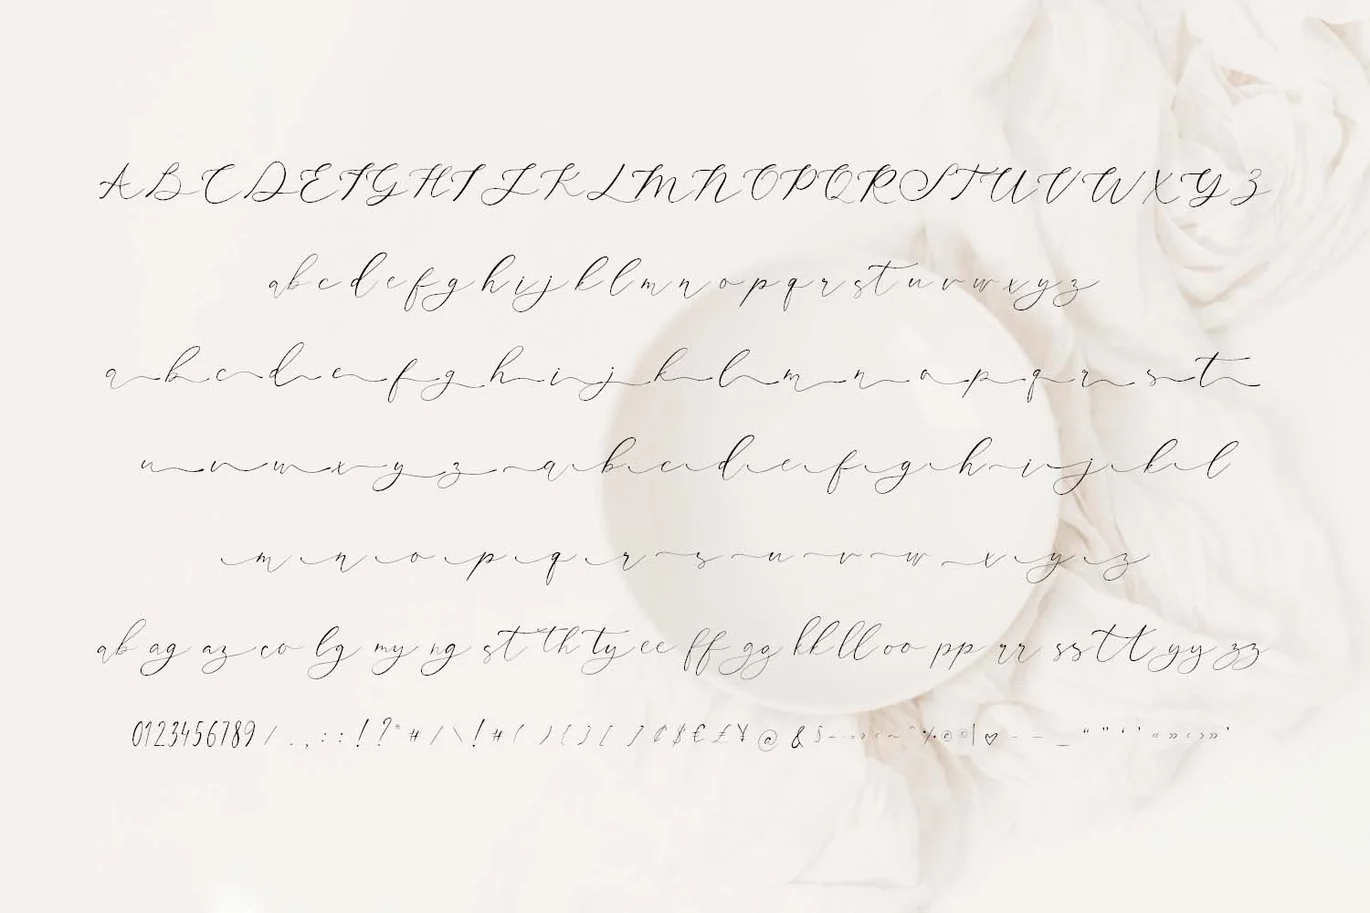 A B C D E F G H I J K L M N O P Q R S T U V W X Y Z
a b c d e f g h i j k l m n o p q r s t u v w x y z
a b c d e f g h i j k l m n o p q r s t
u v w x y z a b c d e f g h i j k l
m n o p q r s u v w x y z
ab ag az co lg my ng st th ty ee ff gg kk ll oo pp rr ss tt yy zz
0123456789 / . , : ; ! ? * # / \ ! # ( ) { } [ ] ¢ $ € £ ¥ @ &